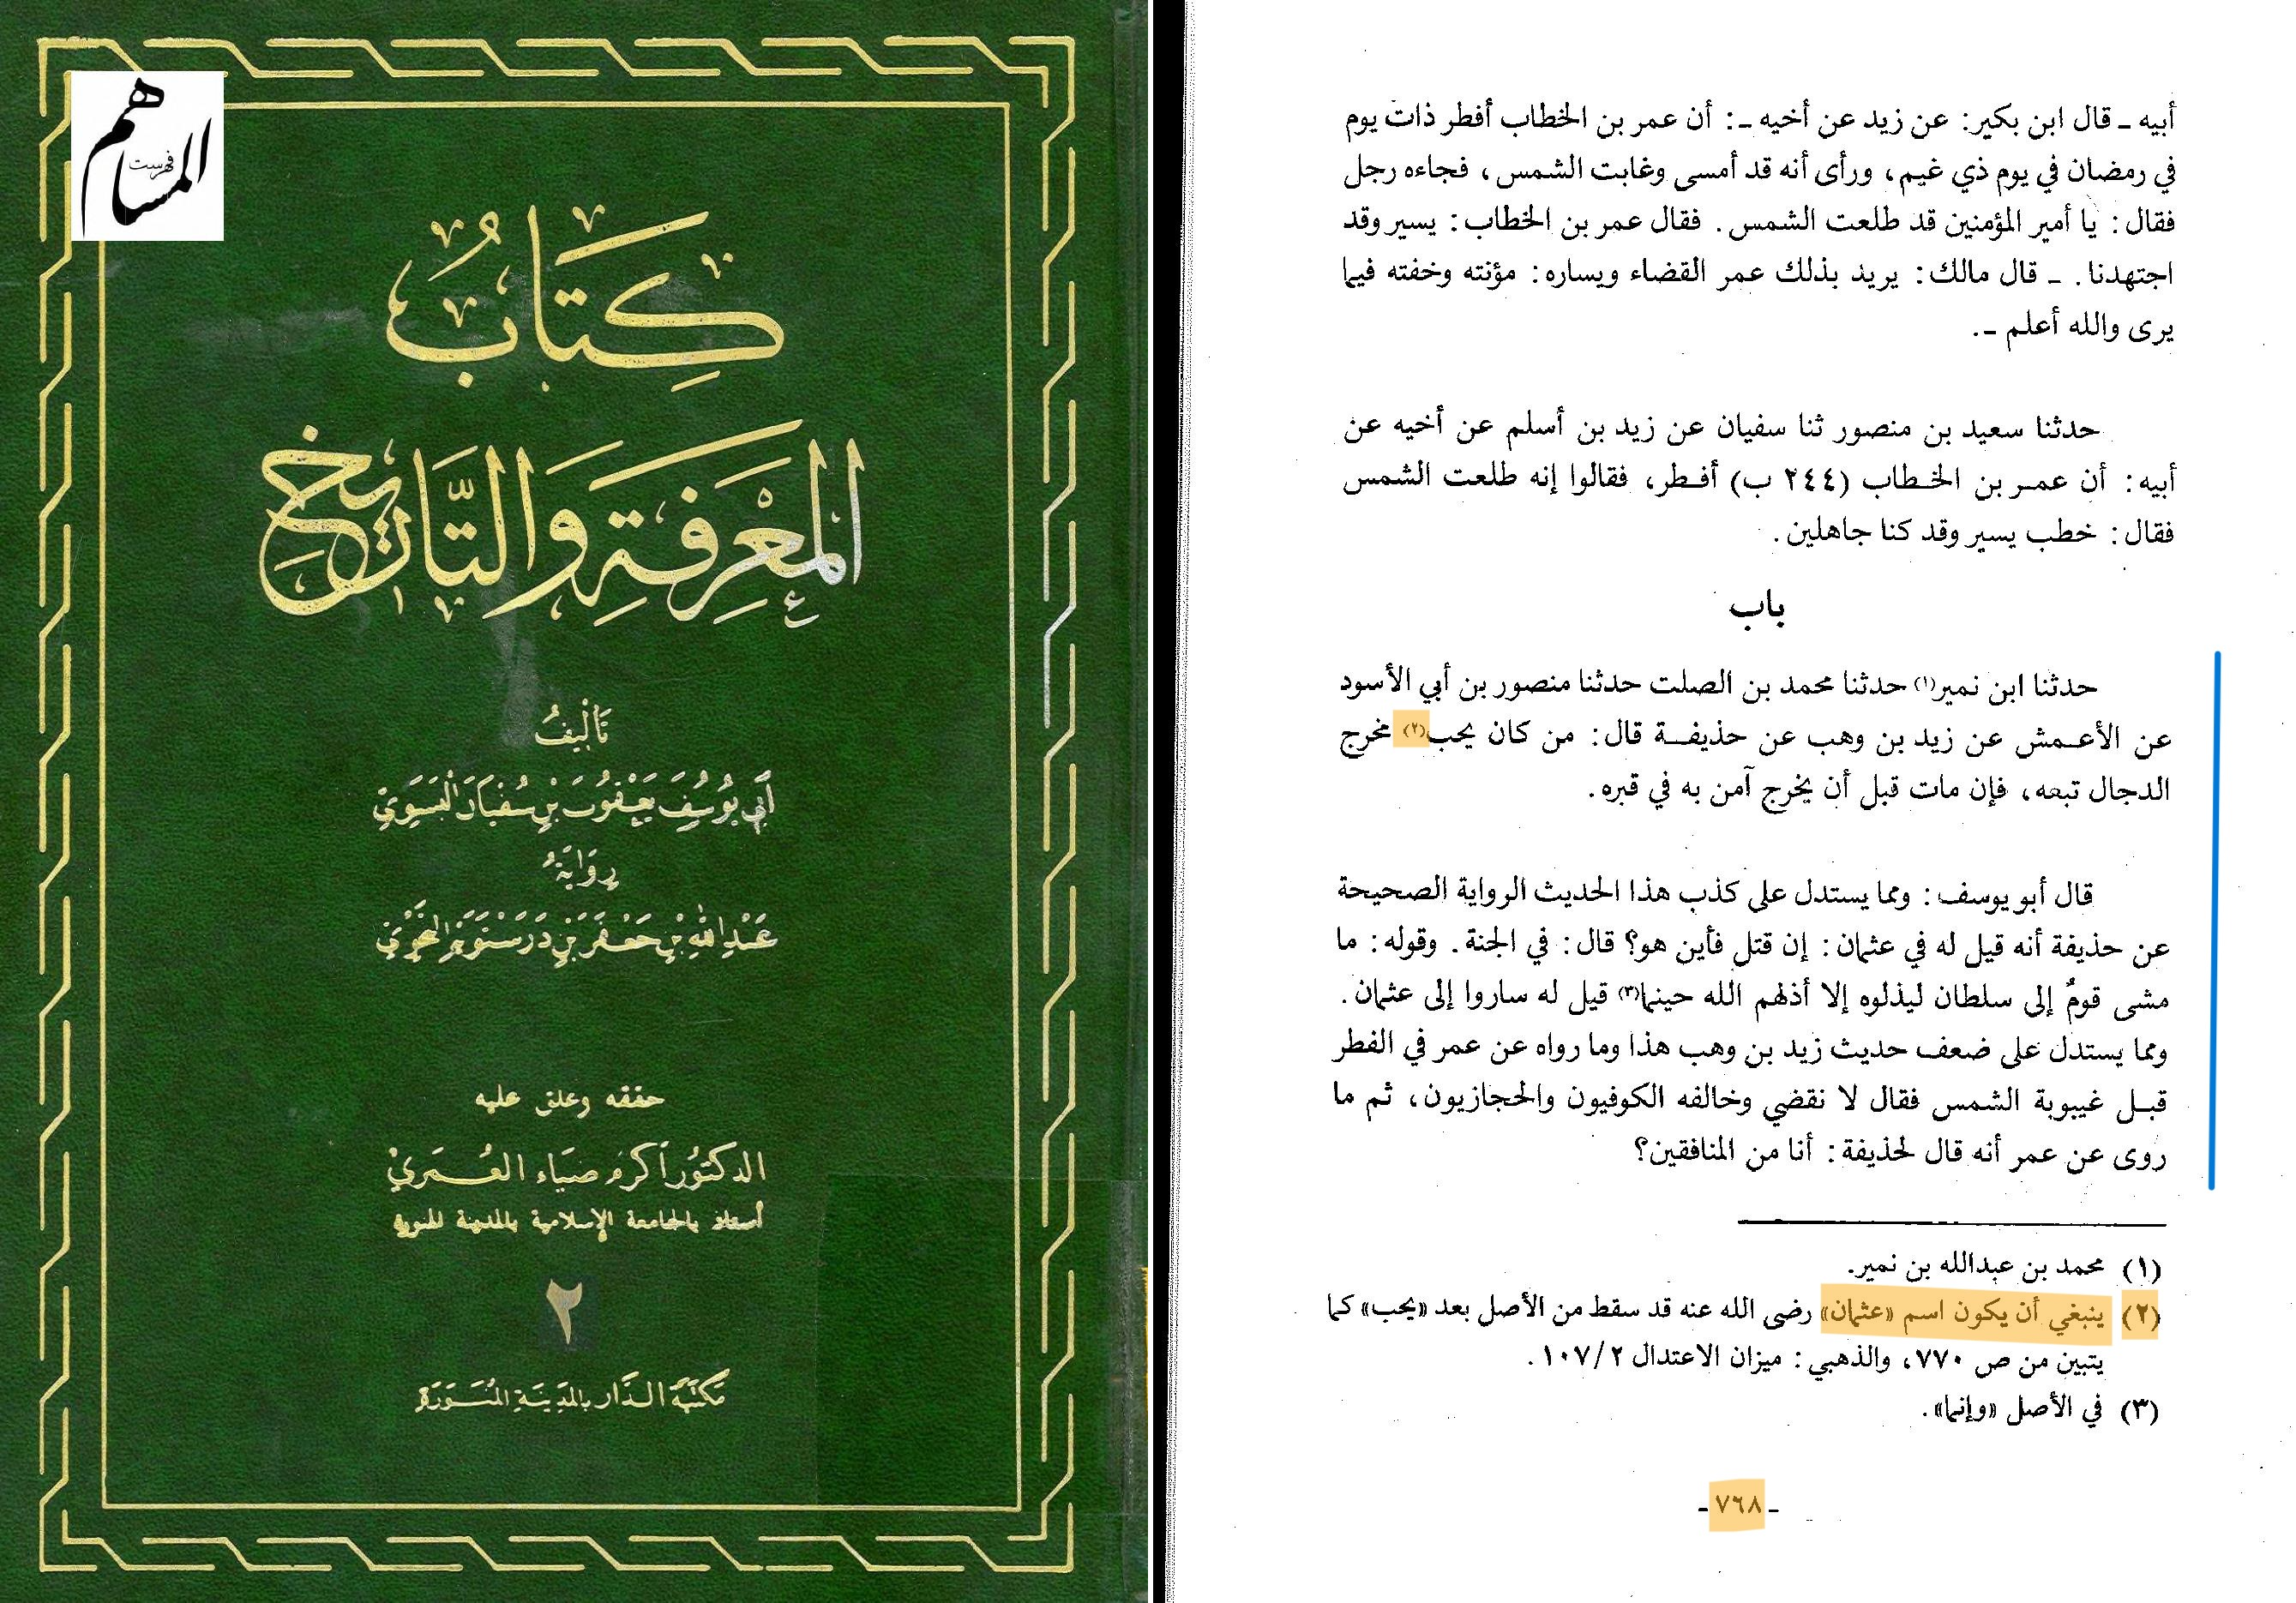 المساهم
فهرست
كِتَابُ
المَعْرِفَةِ وَالتَّارِيخِ
تَأْلِيفُ
أَبِي يُوسُفَ يَعْقُوبَ بْنِ سُفْيَانَ البَسَوِيّ
رِوَايَةُ
عَبْدِ اللهِ بْنِ جَعْفَرِ بْنِ دَرَسْتَوَيْهِ النَّحْوِيّ
حققه وعلق عليه
الدكتور أكرم ضياء العُمَري
أستاذ بالجامعة الإسلامية بالمدينة المنورة
٢
مكتبة الدار بالمدينة المنورة
أبيه ـ قال ابن بكير: عن زيد عن أخيه ـ: أن عمر بن الخطاب أفطر ذات يوم
في رمضان في يوم ذي غيم، ورأى أنه قد أمسى وغابت الشمس، فجاءه رجل
فقال: يا أمير المؤمنين قد طلعت الشمس. فقال عمر بن الخطاب: يسير وقد
اجتهدنا. ـ قال مالك: يريد بذلك عمر القضاء ويساره: مؤنته وخفته فيما
يرى والله أعلم ـ.
حدثنا سعيد بن منصور ثنا سفيان عن زيد بن أسلم عن أخيه عن
أبيه: أن عمر بن الخطاب (٢٤٤ ب) أفطر، فقالوا إنه طلعت الشمس
فقال: خطب يسير وقد كنا جاهلين.
باب
حدثنا ابن نمير(١) حدثنا محمد بن الصلت حدثنا منصور بن أبي الأسود
عن الأعمش عن زيد بن وهب عن حذيفة قال: من كان يحب(٢) مخرج
الدجال تبعه، فإن مات قبل أن يخرج آمن به في قبره.
قال أبو يوسف: ومما يستدل على كذب هذا الحديث الرواية الصحيحة
عن حذيفة أنه قيل له في عثمان: إن قتل فأين هو؟ قال: في الجنة. وقوله: ما
مشى قومٌ إلى سلطان ليذلوه إلا أذلهم الله حينما(٣) قيل له ساروا إلى عثمان.
ومما يستدل على ضعف حديث زيد بن وهب هذا وما رواه عن عمر في الفطر
قبل غيبوبة الشمس فقال لا نقضي وخالفه الكوفيون والحجازيون، ثم ما
روى عن عمر أنه قال لحذيفة: أنا من المنافقين؟
(١) محمد بن عبدالله بن نمير.
(٢) ينبغي أن يكون اسم «عثمان» رضى الله عنه قد سقط من الأصل بعد «يحب» كما
يتبين من ص ٧٧٠، والذهبي: ميزان الاعتدال ١٠٧/٢.
(٣) في الأصل «وإنما».
ـ ٧٦٨ ـ